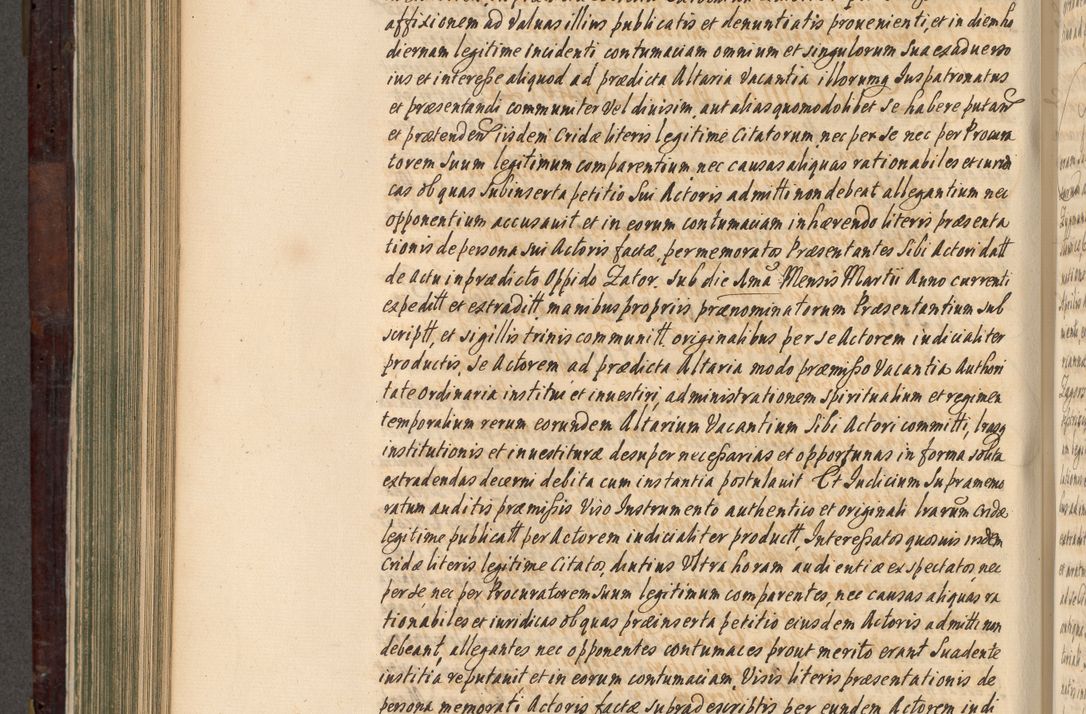 affixionem ad valuas illius publicatis et denuntiatis prouenienti, et in diem ho
diernam legitime incidenti contumaciam omnium et singulorum sua ex aduerso
ius et interesse aliquod ad prædicta Altaria vacantia illorumq Juspatronatus
et præsentandi communiter vel diuisim, aut alias quomodolibet se habere putan
et prætenden iisdem Cridæ literis legitime Citatorum, nec per se nec per Procura
torem suum legitimum comparentium, nec causas aliquas rationabiles et iuridi
cas ob quas subinserta petitio sui Actoris admitti non debeat allegantium nec
opponentium accusauit et in eorum contumaciam inhærendo literis præsenta
tionis de persona sui Actoris factæ, per memoratos Præsentantes sibi Actori datt
de actu in prædicto Oppido Zator. sub die Ama Mensis Martii Anno currenti
expeditt et extraditt, manibus propriis prænominatorum Præsentantium sub
scriptt, et sigillis trinis communitt, originalibus per se Actorem iudicialiter
productis, se Actorem ad prædicta Altaria modo præmisso vacantia Authori
tate ordinaria institui et inuestiri, administrationem spiritualium et regimen
temporalium rerum eorundem Altarium Vacantium sibi Actori committi, lrasq
institutionis et inuestituræ desuper necessarias et opportunas in forma solita
extradendas decerni debita cum instantia postulauit Et Judicium supramemo
ratum auditis præmissis Viso Instrumento authentico et originali lrarum cridæ
legitime publicatt per Actorem iudicialiter productt, Interessatos quosuis iisdem
Cridæ literis legitime Citatos, diutius Vltra horam audientiæ expectatos, nec
per se, nec per Procuratorem suum legitimum comparentes, nec causas aliquas ra
tionabiles et iuridicas ob quas præinserta petitio eiusdem Actoris admitti non
debeant, allegantes nec opponentes contumaces prout merito erant suadente
iustitia reputauit et in eorum contumaciam, Visis literis præsentationis de
persona memorati Actoris factæ supradescriptis per eundem Actorem iudi